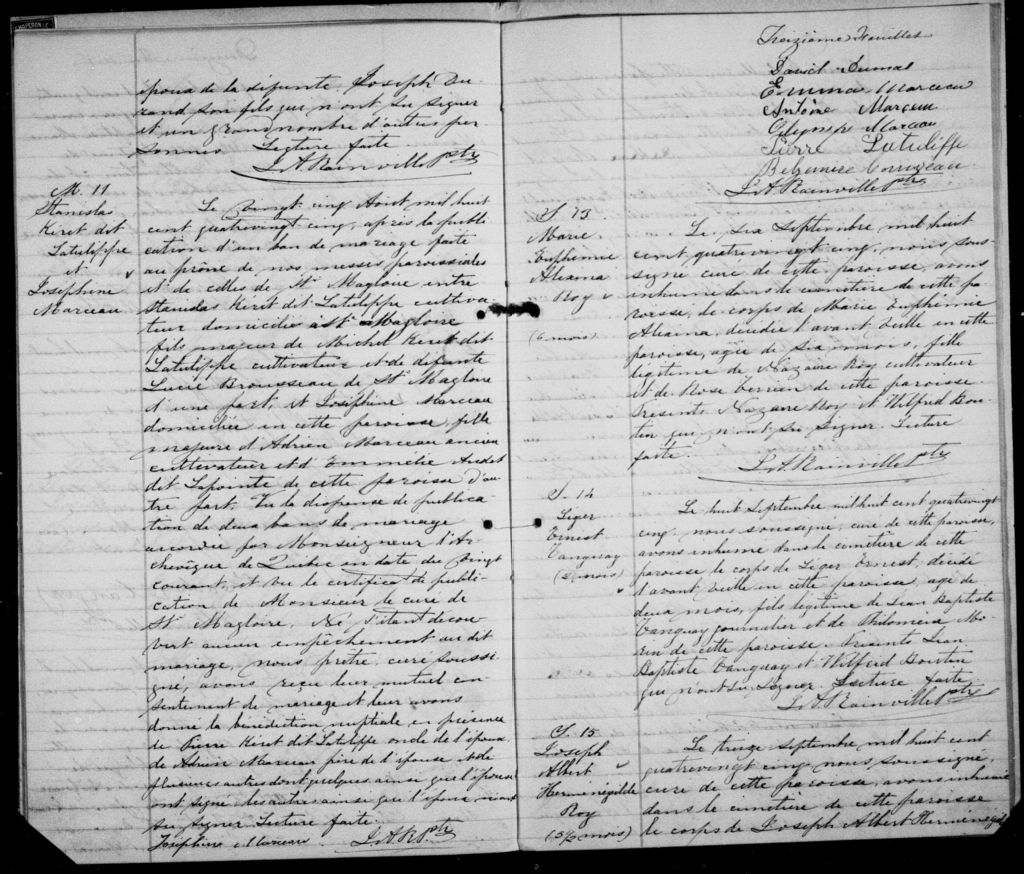 époux de la défunte, Joseph Du-
rand son fils qui n'ont su signer
et un grand nombre d'autres per
sonnes Lecture faite
L. A. Rainville Ptr
M. 11
Stanislas
Kéret dit
Latulippe
et
Joséphine
Marceau
Le vingt cinq Aout mil huit
cent quatrevingt cinq, après la publi-
cation d'un ban de mariage faite
au prône de nos messes paroissiales
et de celles de St Magloire entre
Stanislas Kéret dit Latulippe cultiva-
teur domicilié à St Magloire
fils majeur de Michel Kéret dit
Latulippe cultivateur et de défunte
Lucie Brousseau de St Magloire
d'une part, et Joséphine Marceau
domiciliée en cette paroisse, fille
majeure d'Adrien Marceau ancien
cultivateur et d'Emmélie Audet
dit Lapointe de cette paroisse d'au-
tre part. Vu la dispense de publica-
tion de deux bans de mariage
accordée par Monseigneur l'Ar-
chevêque de Québec en date du vingt
courant, et vu le certificat de publi-
cation de Monsieur le curé de
St Magloire, Ne s'étant décou-
vert aucun empêchement au dit
mariage, nous prêtre, curé soussi-
gné, avons reçu leur mutuel con-
sentement de mariage et leur avons
donné la bénédiction nuptiale en présence
de Pierre Kéret dit Latulippe oncle de l'époux,
de Adrien Marceau père de l'épouse et de
plusieurs autres dont quelques ainsi que l'épouse
ont signé, les autres ainsi que l'époux n'ayant
su signer Lecture faite.
Joséphine Marceau L. A. R. Ptr
Treizième Feuillet
David Dumas
Emma Marceau
Antoine Marceau
Olympe Marceau
Pierre Latulippe
L. A. Rainville Ptr
S. 13
Marie
Euphémie
Alexina
Roy
(6 mois)
Le six Septembre mil huit
cent quatrevingt cinq, nous sous-
signé curé de cette paroisse, avons
inhumé dans le cimetière de cette pa-
roisse, le corps de Marie Euphémie
Alexina, décédée l'avant veille en cette
paroisse, agée de six mois, fille
légitime de Nazaire Roy cultivateur
et de Rose Terrien de cette paroisse.
Présents Nazaire Roy et Wilfred Bou-
tin qui n'ont su signer. Lecture
faite.
L. A. Rainville Ptr
S. 14
Léger
Ernest
Tanguay
(2 mois)
Le huit Septembre mil huit cent quatrevingt
cinq, nous soussigné, curé de cette paroisse,
avons inhumé dans le cimetière de cette
paroisse le corps de Léger Ernest, décédé
l'avant veille en cette paroisse, agé de
deux mois, fils légitime de Jean Baptiste
Tanguay journalier et de Philomène Mo-
rin de cette paroisse. Présents Jean
Baptiste Tanguay et Wilfred Boutin
qui n'ont su signer. Lecture faite
L. A. Rainville Ptr
S. 15
Joseph
Albert
Herménégilde
Roy
(5½ mois)
Le treize septembre mil huit cent
quatrevingt cinq nous soussigné,
curé de cette paroisse, avons inhumé
dans le cimetière de cette paroisse
le corps de Joseph Albert Herménégil